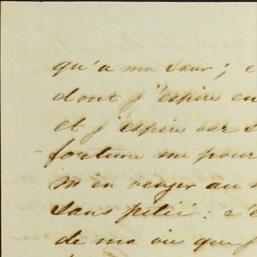 qu'a ma sœur; e
dont j'espere en
et j'espere
fortune me pour
m'en venger au
sans pitié: c'é
de ma vie que j